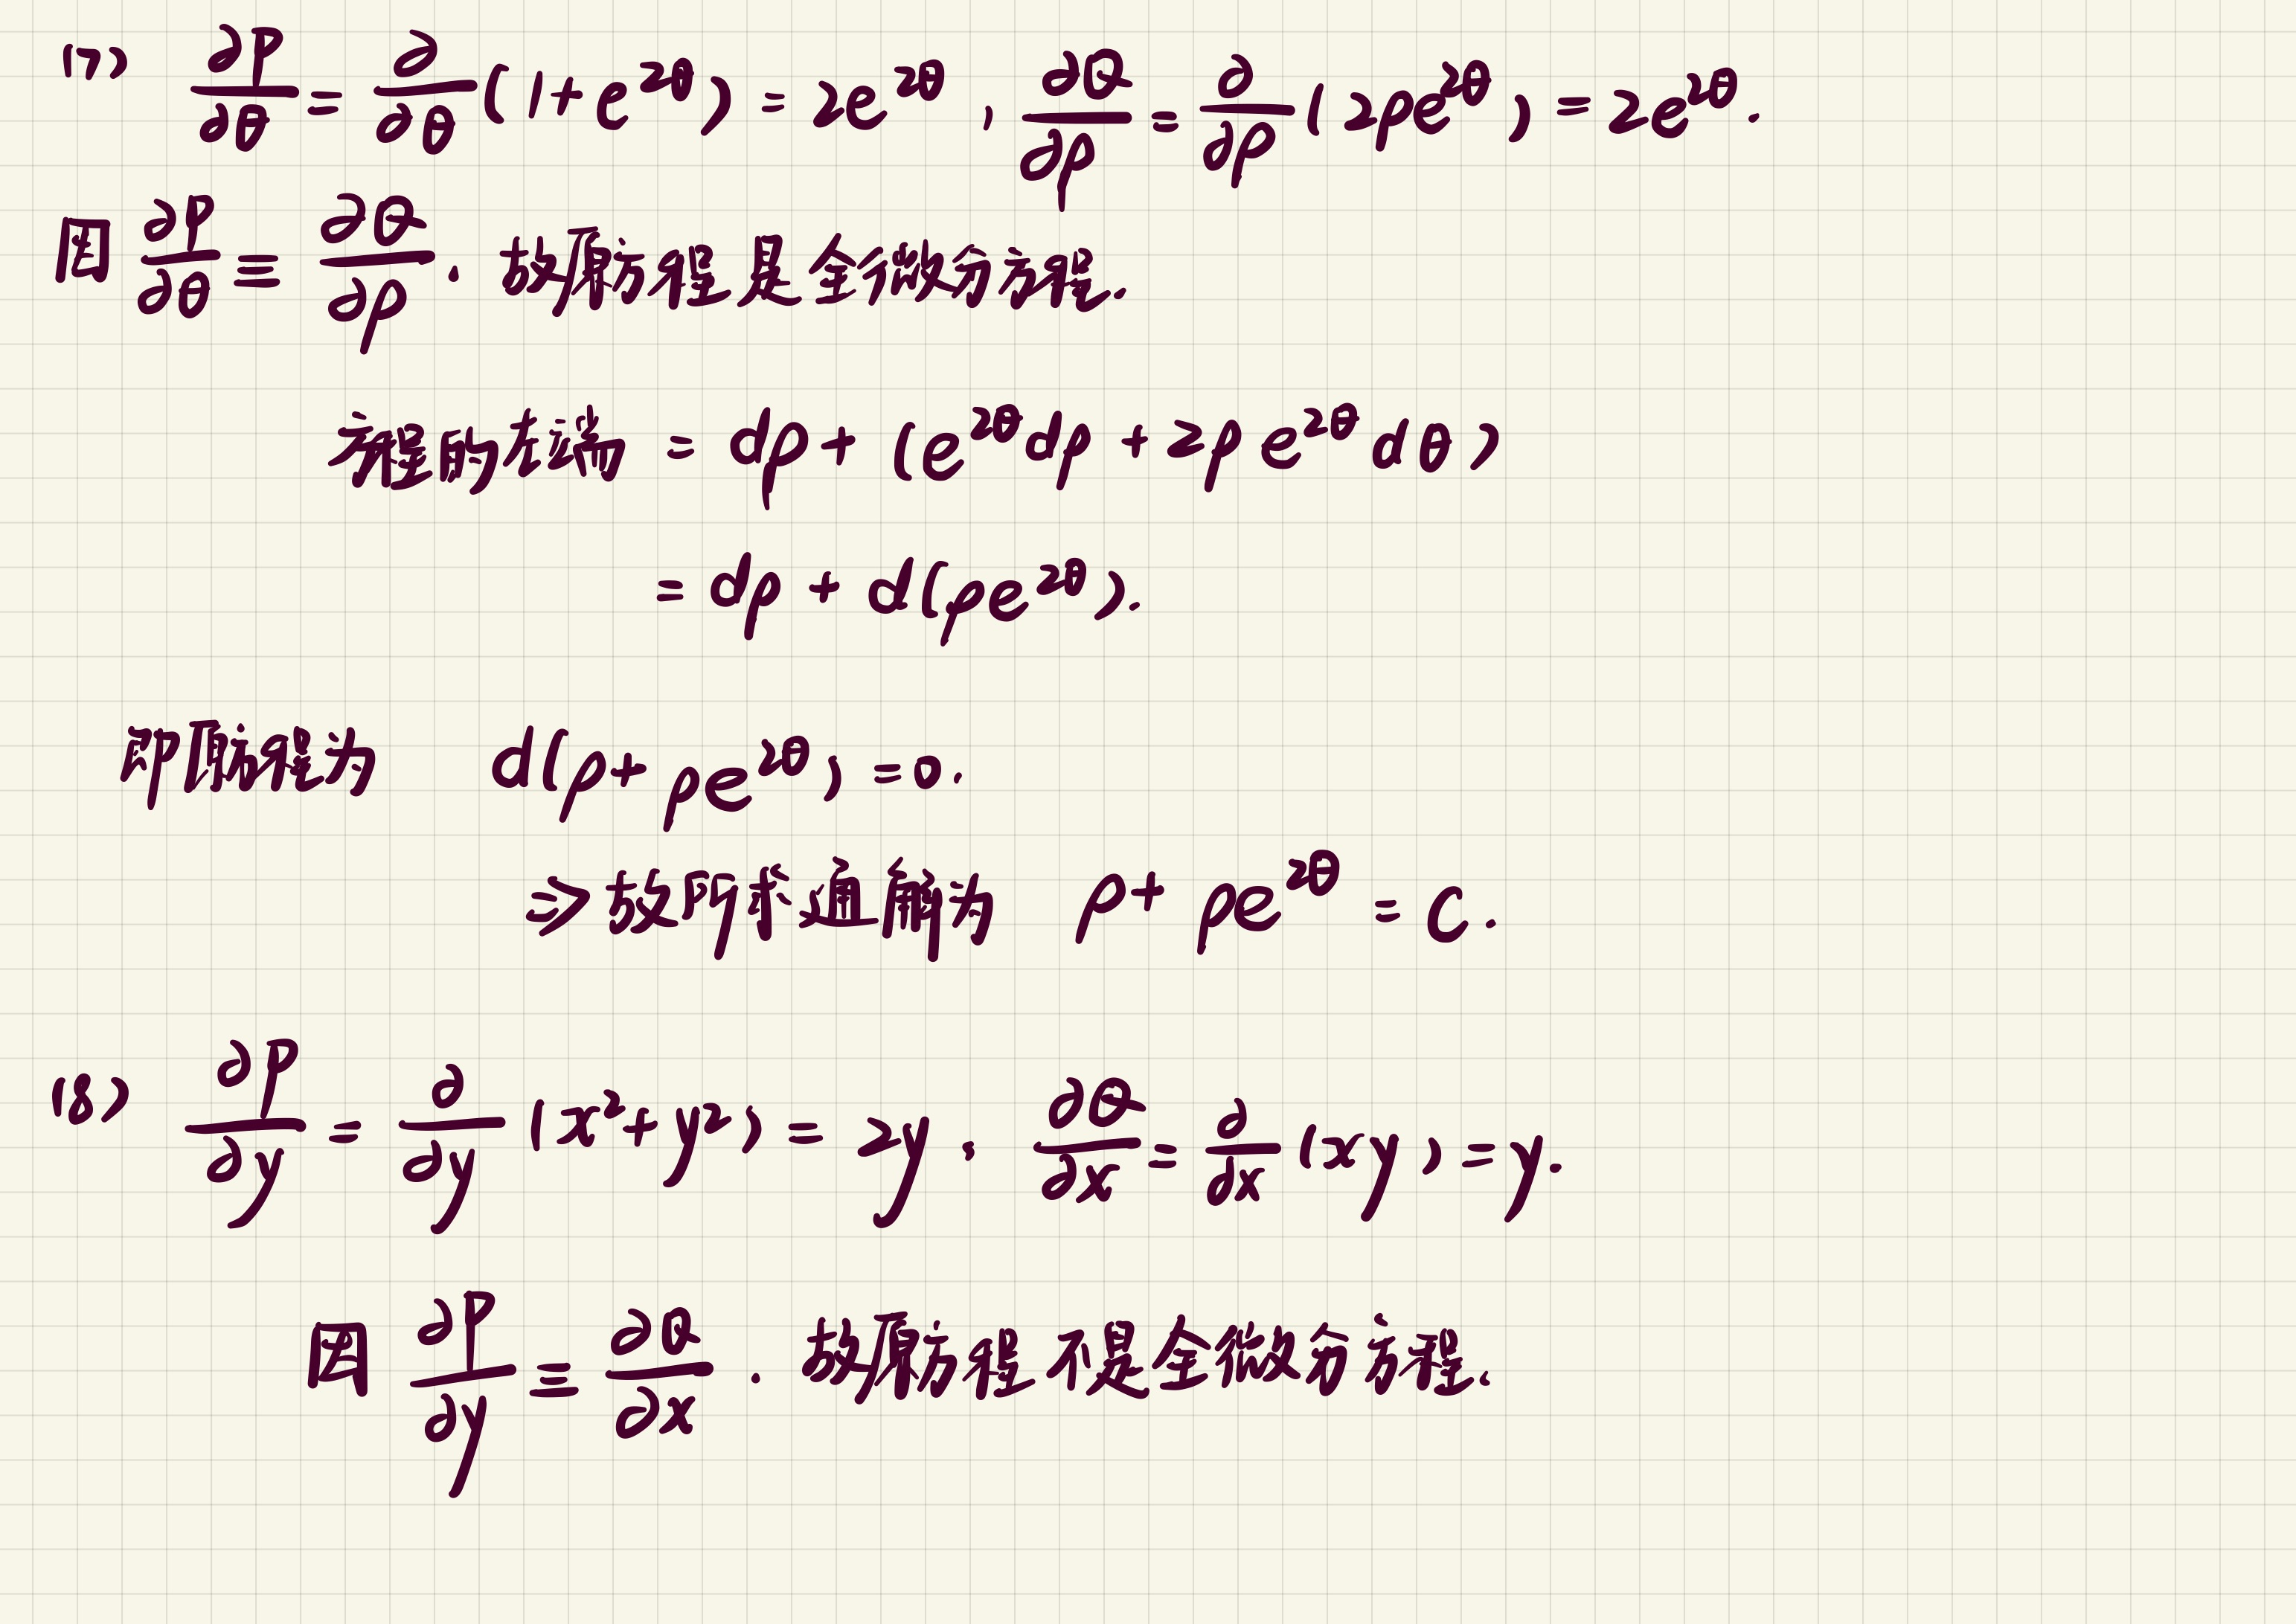 (7) ∂P/∂θ = ∂/∂θ (1+e^{2θ}) = 2e^{2θ}, ∂Q/∂ρ = ∂/∂ρ (2ρe^{2θ}) = 2e^{2θ}.
因 ∂P/∂θ ≡ ∂Q/∂ρ. 故原方程是全微分方程.
方程的左端 = dρ + (e^{2θ}dρ + 2ρe^{2θ}dθ)
= dρ + d(ρe^{2θ}).
即原方程为 d(ρ+ρe^{2θ}) = 0.
⇒ 故所求通解为 ρ + ρe^{2θ} = C.
(8) ∂P/∂y = ∂/∂y (x²+y²) = 2y, ∂Q/∂x = ∂/∂x (xy) = y.
因 ∂P/∂y ≡ ∂Q/∂x. 故原方程不是全微分方程.